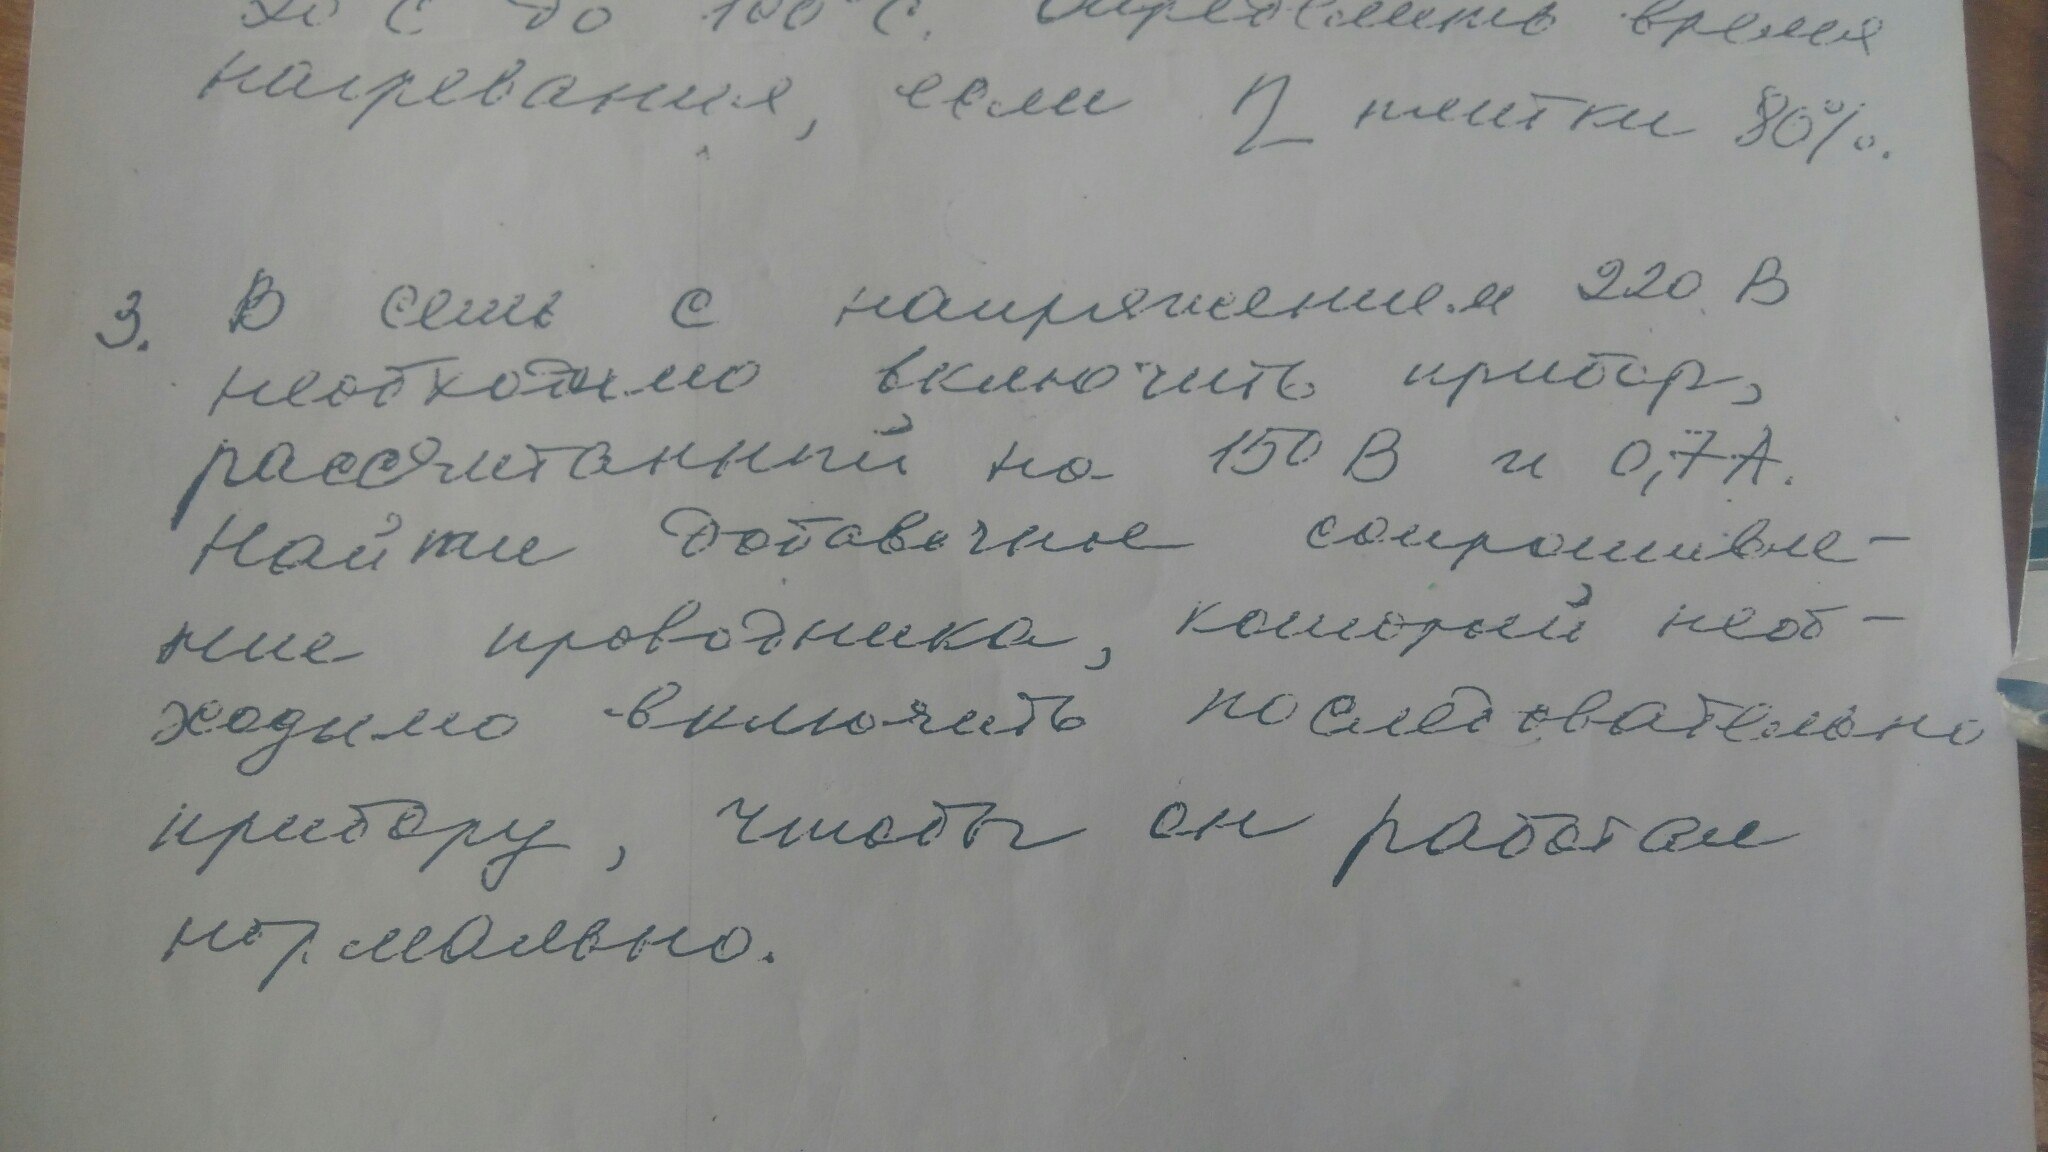 20°С до 100°С. Определить время
нагревания, если η плитки 80%.
3. В сеть с напряжением 220 В
необходимо включить прибор,
рассчитанный на 150 В и 0,7А.
Найти добавочное сопротивле-
ние проводника, который необ-
ходимо включить последовательно
прибору, чтобы он работал
нормально.